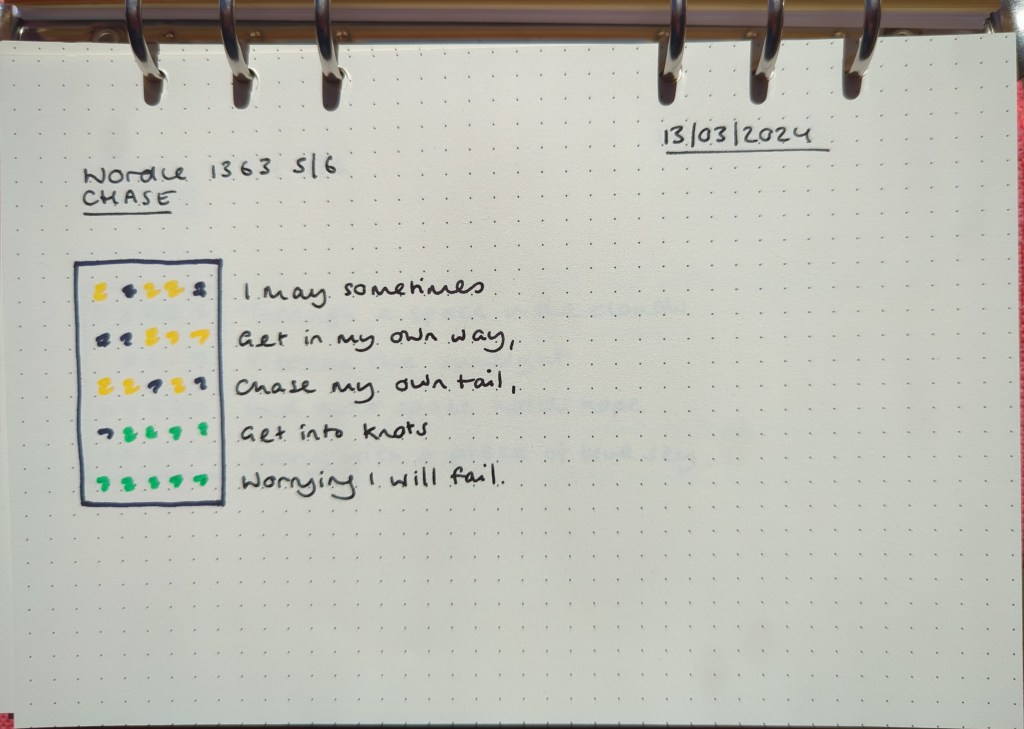 13/03/2024
Wordle 1363 5/6
CHASE
I may sometimes
Get in my own way,
Chase my own tail,
Get into knots
Worrying I will fail.